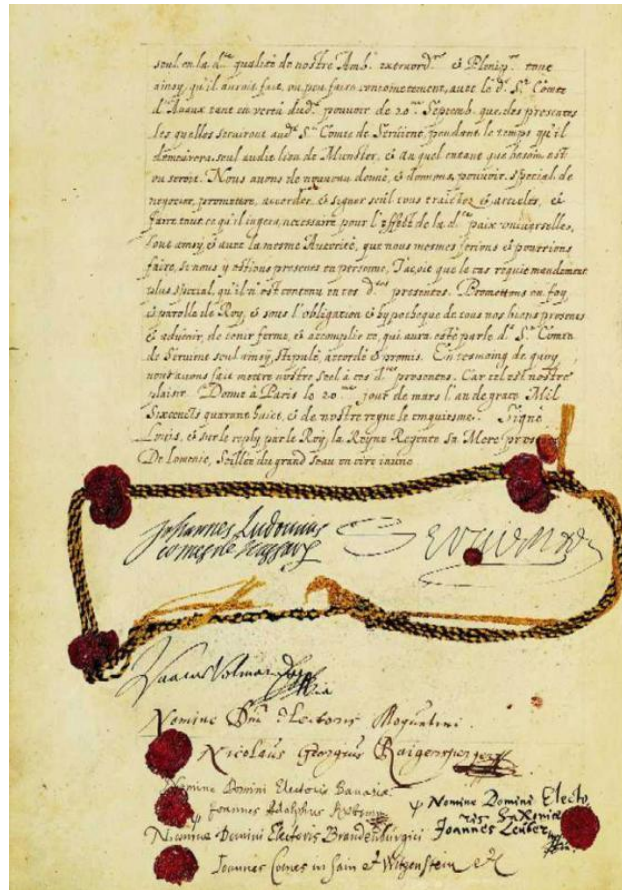 seul en la d.te qualité de nostre Amb.r extraord.re & Plenip.re tout
ainsy, qu'il auroit fait, ou peu faire conioinctement, avec le d.t S.r Comte
d'Avaux tant en vertu dud.t pouvoir de 20.me Septemb. que des presentes
les quelles serviront aud.t S.r Comte de Servient, pendant le temps qu'il
demeurera seul audit lieu de Munster, & au quel entant que besoin est
ou seroit. Nous avons de nouveau donné, & donnons, pouvoir special de
negocier, promettre, accorder, & signer seul tous traictez & articles, &
faire tout ce qu'il iugera necessaire pour l'effect de la d.te paix universelle,
tout ainsy, & avec la mesme Autorité, que nous mesmes ferions & pourrions
faire, si nous y estions presens en personne, Jaçoit que le cas requie mandement
plus special qu'il n'est contenu en ces d.tes presentes. Promettons en foy
& parolle de Roy, & sous l'obligation & hypotheque de tous nos biens presens
& advenir, de tenir ferme, & accomplir ce, qui aura esté par le d.t S.r Comte
de Servient seul ainsy, stipulé, accordé & promis. En tesmoing de quoy
nous avons fait mettre nostre seel à ces d.tes presentes. Car tel est nostre
plaisir. Donné à Paris le 20.me jour de mars l'an de grace Mil
Sixcents quarant huict, & de nostre regne le cinquiesme. Signé
Louis, & sur le reply par le Roy, la Reyne Regente sa Mere presente
De Lomenie, Seillée du grand seau en cire iaune
Johannes Ludovicus
comes de Nassau
Servien
Isaacus Volmar
Nomine Dni Electoris Moguntini.
Nicolaus Georgius Raigersperger
Nomine Domini Electoris Bavariae
Joannes Adolphus
Nomine Domini Electo
ris Saxoniae
Joannes Leuber
Nomine Domini Electoris Brandenburgici
Joannes Comes in Sain et Witgenstein